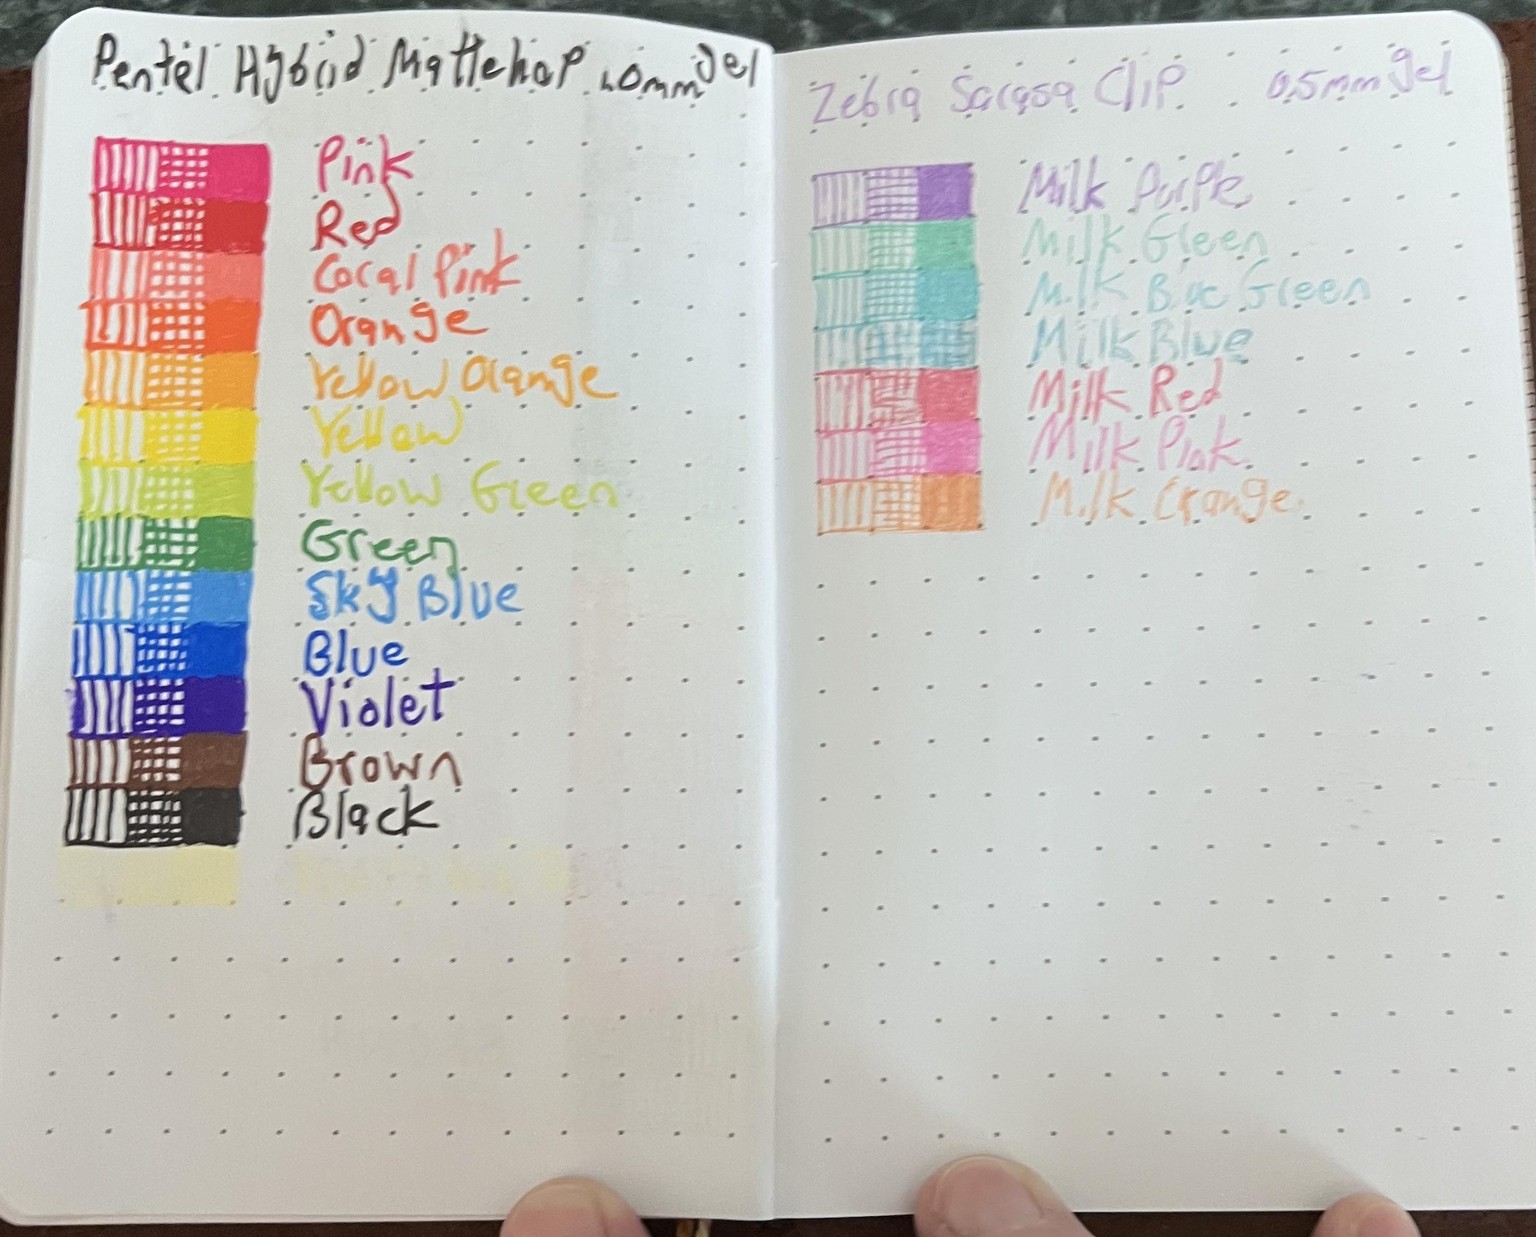 Pentel Hybrid Mattehop 1.0mm Gel
Pink
Red
Coral Pink
Orange
Yellow Orange
Yellow
Yellow Green
Green
Sky Blue
Blue
Violet
Brown
Black
Zebra Sarasa Clip 0.5mm Gel
Milk Purple
Milk Green
Milk Blue Green
Milk Blue
Milk Red
Milk Pink
Milk Orange